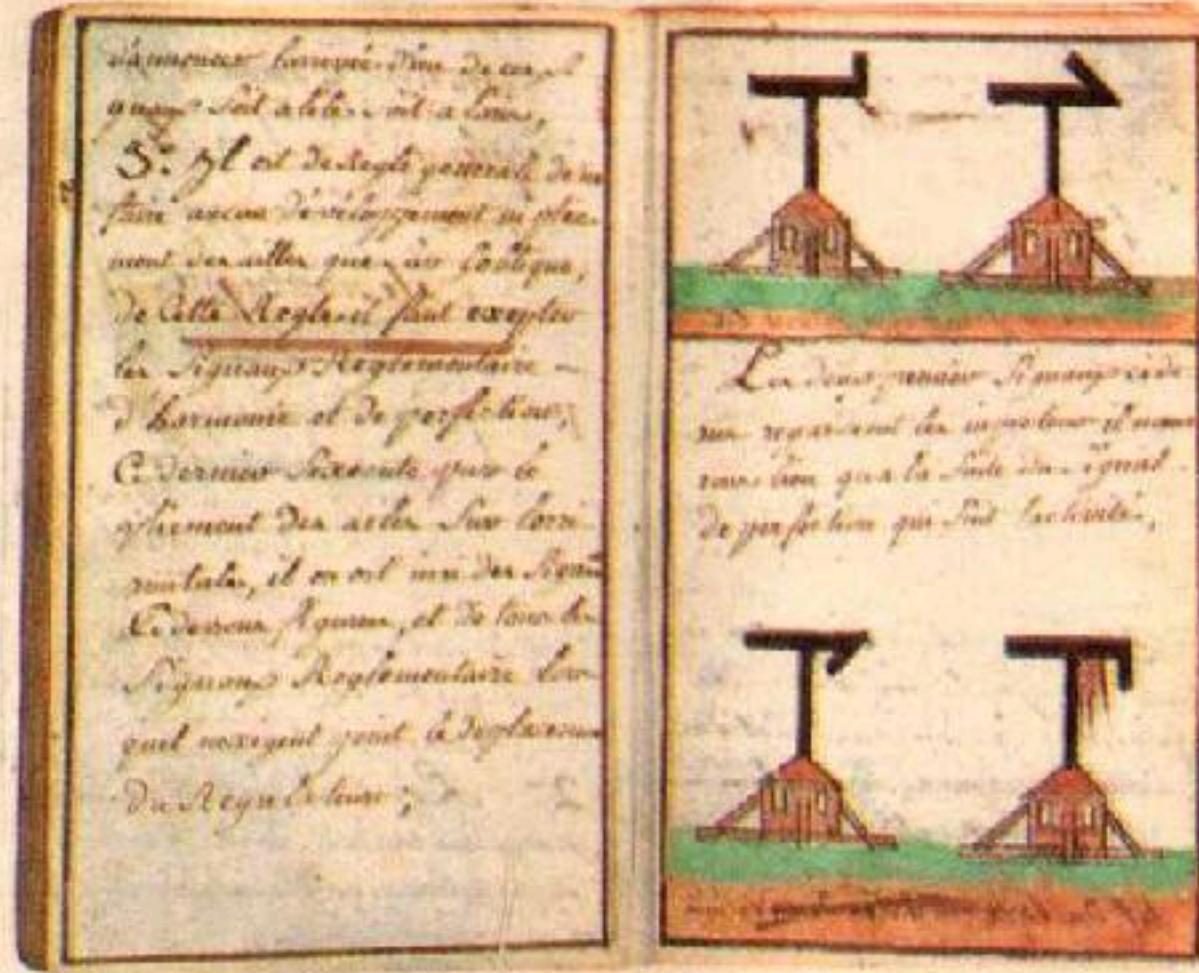 d'annoncer l'arrivée d'un de ces si
gnaux soit a lété soit a
3.º Il est de Regle generale de ne
faire aucun développement ni ploie
ment des ailles que sur loblique,
de Cette Regle il faut excepter
les Signaux Reglementaire
d'harmonie et de perfection,
Ce dernier Sexecute par le
ploiement des ailes Sur lori
zontale, il en est ainsi des Signaux
Ci dessous figurés, et de tous les
Signaux Reglementaire lors
quil nexigent point le deplacement
du Regulateur;
Les deux premier Signaux ci de
sus regardent les inspecteur il
que a la Suite du Signal
de perfection qui Suit lactivité,